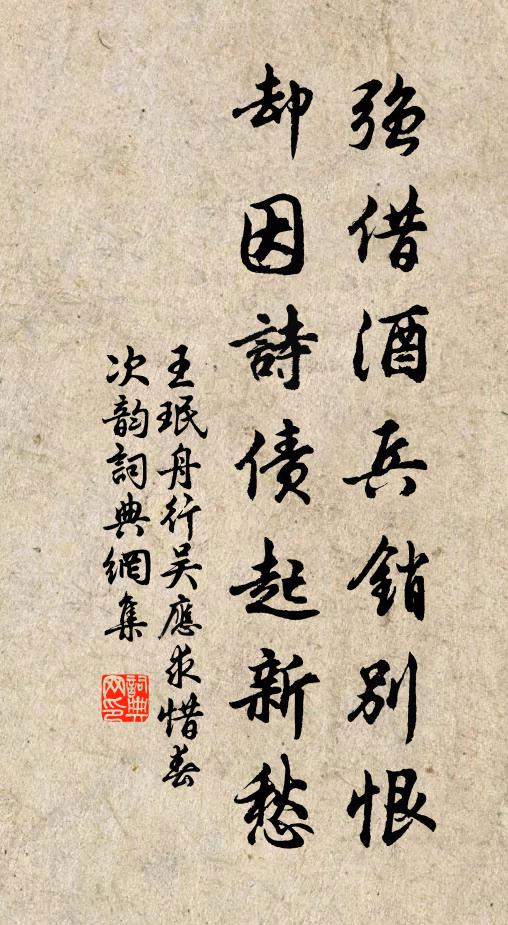 強借酒兵銷別恨
却因詩債起新愁
王珉舟行吴應求惜春
次韵詞典網集
詞典網印